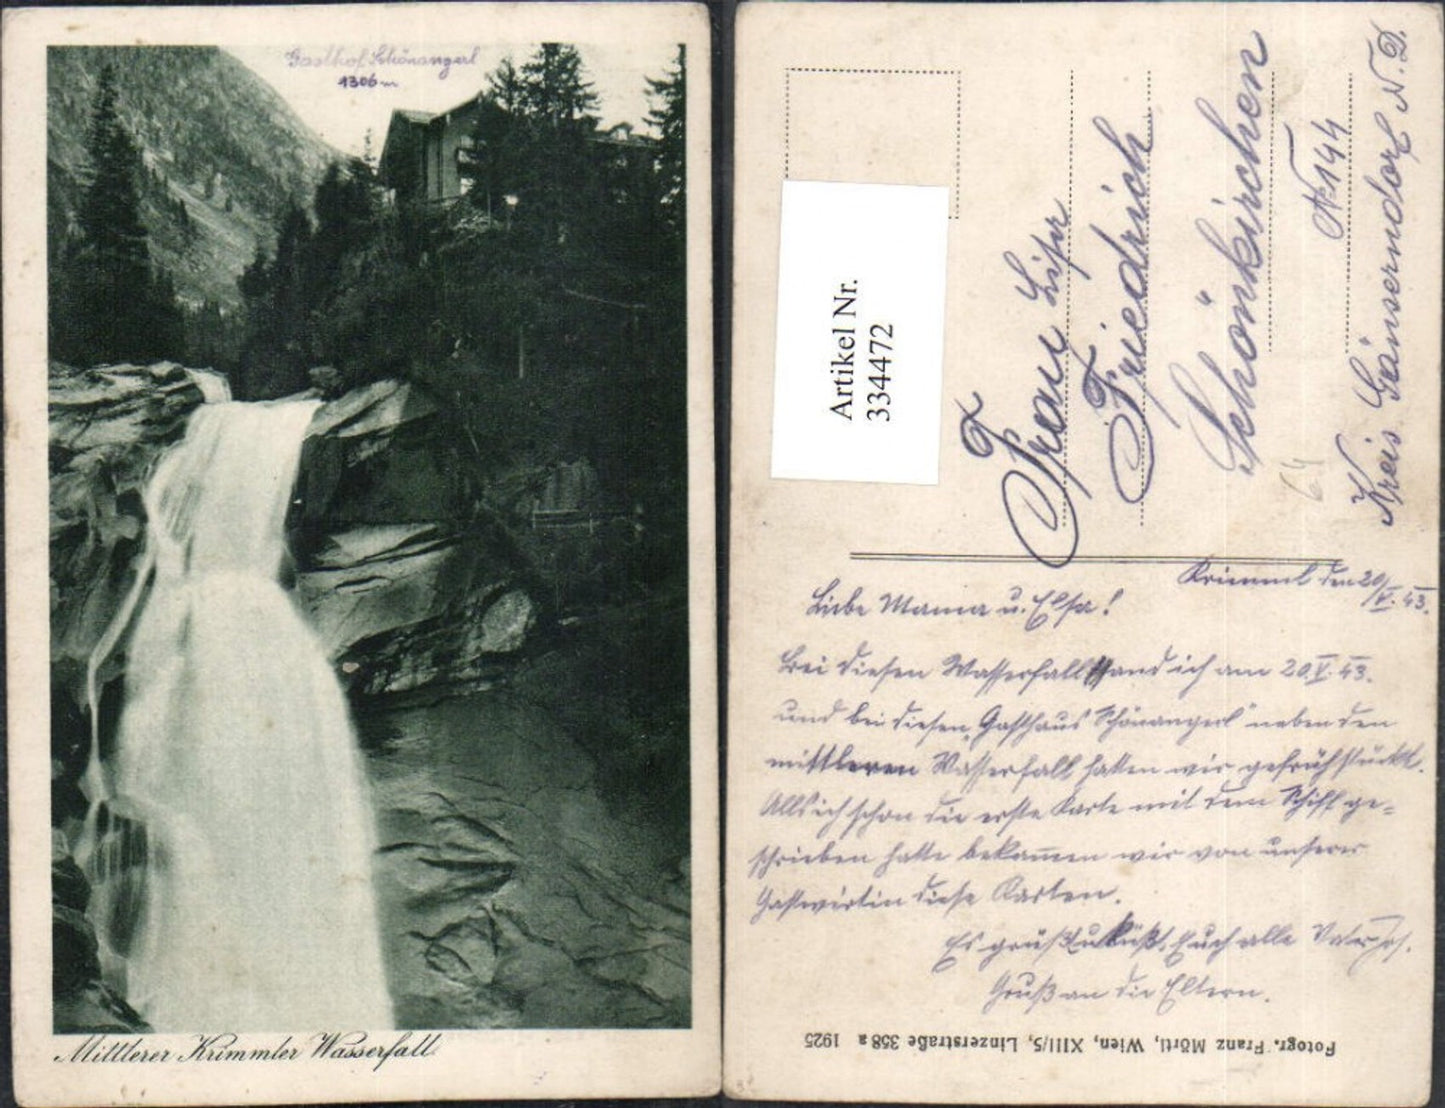 Gasthof Schönangerl
1306 m
Mittlerer Krimmler Wasserfall
Artikel Nr.
334472
Frau Lisa
Friedrich
Schönkirchen
Nr 144
Kreis Gänserndorf N. D.
64
Krimml den 20/V. 43.
Liebe Mama u. Elsa!
Bei diesen Wasserfall stand ich am 20.V. 43.
und bei diesen „Gasthaus Schönangerl" neben den
mittleren Wasserfall hatten wir gefrühstückt.
Alls ich schon die erste Karte mit dem Schiff ge=
schrieben hatte bekamen wir von unserer
Gastwirtin diese Karten.
Es grüßt u küßt Euch alle
Gruß an die Eltern.
Fotogr. Franz Mörtl, Wien, XIII/5, Linzerstraße 358 a 1925